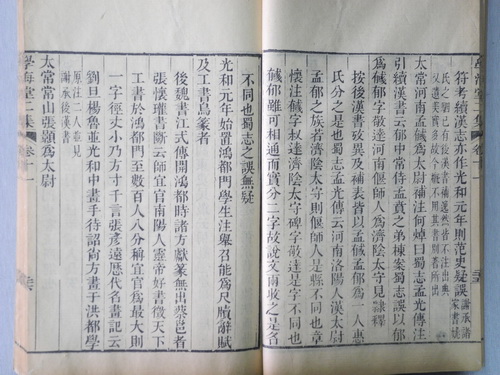 符考續漢志亦作光和元年則范史疑誤謝承諸
家書據
太常河南孟戫為太尉補注何焯曰蜀志孟光傳注
引續漢書云郁中常侍孟賁之弟棟案蜀志以郁
為戫郁字敬達河南偃師人為濟陰太守見隸釋
按後漢書攷異及補表皆以孟戫孟郁為一人惠
氏分之是也蜀志孟光傳云河南洛陽人漢太尉
孟郁之族若濟陰太守則偃師人是縣不同也章
懷注戫字叔達濟陰太守碑字敬達是字不同也
戫郁雖可相通而實分二字故說文兩收之是名
不同也蜀志之誤無疑
光和元年始置鴻都門學生注舉召能為尺牘辭賦
及工書鳥篆者
後魏書江式傳開鴻都時諸方獻篆無出蔡邕者
張懷瓘書斷云師宜官南陽人靈帝好書徵天下
工書於鴻都門至數百人八分稱宜官為最大則
一字徑丈小乃方寸千言張彥遠歷代名畫記云
劉旦楊魯並光和中畫手待詔尚方畫于洪都學
原注二人並見
謝承後漢書
太常常山張顥為太尉
學海堂二集 卷十一